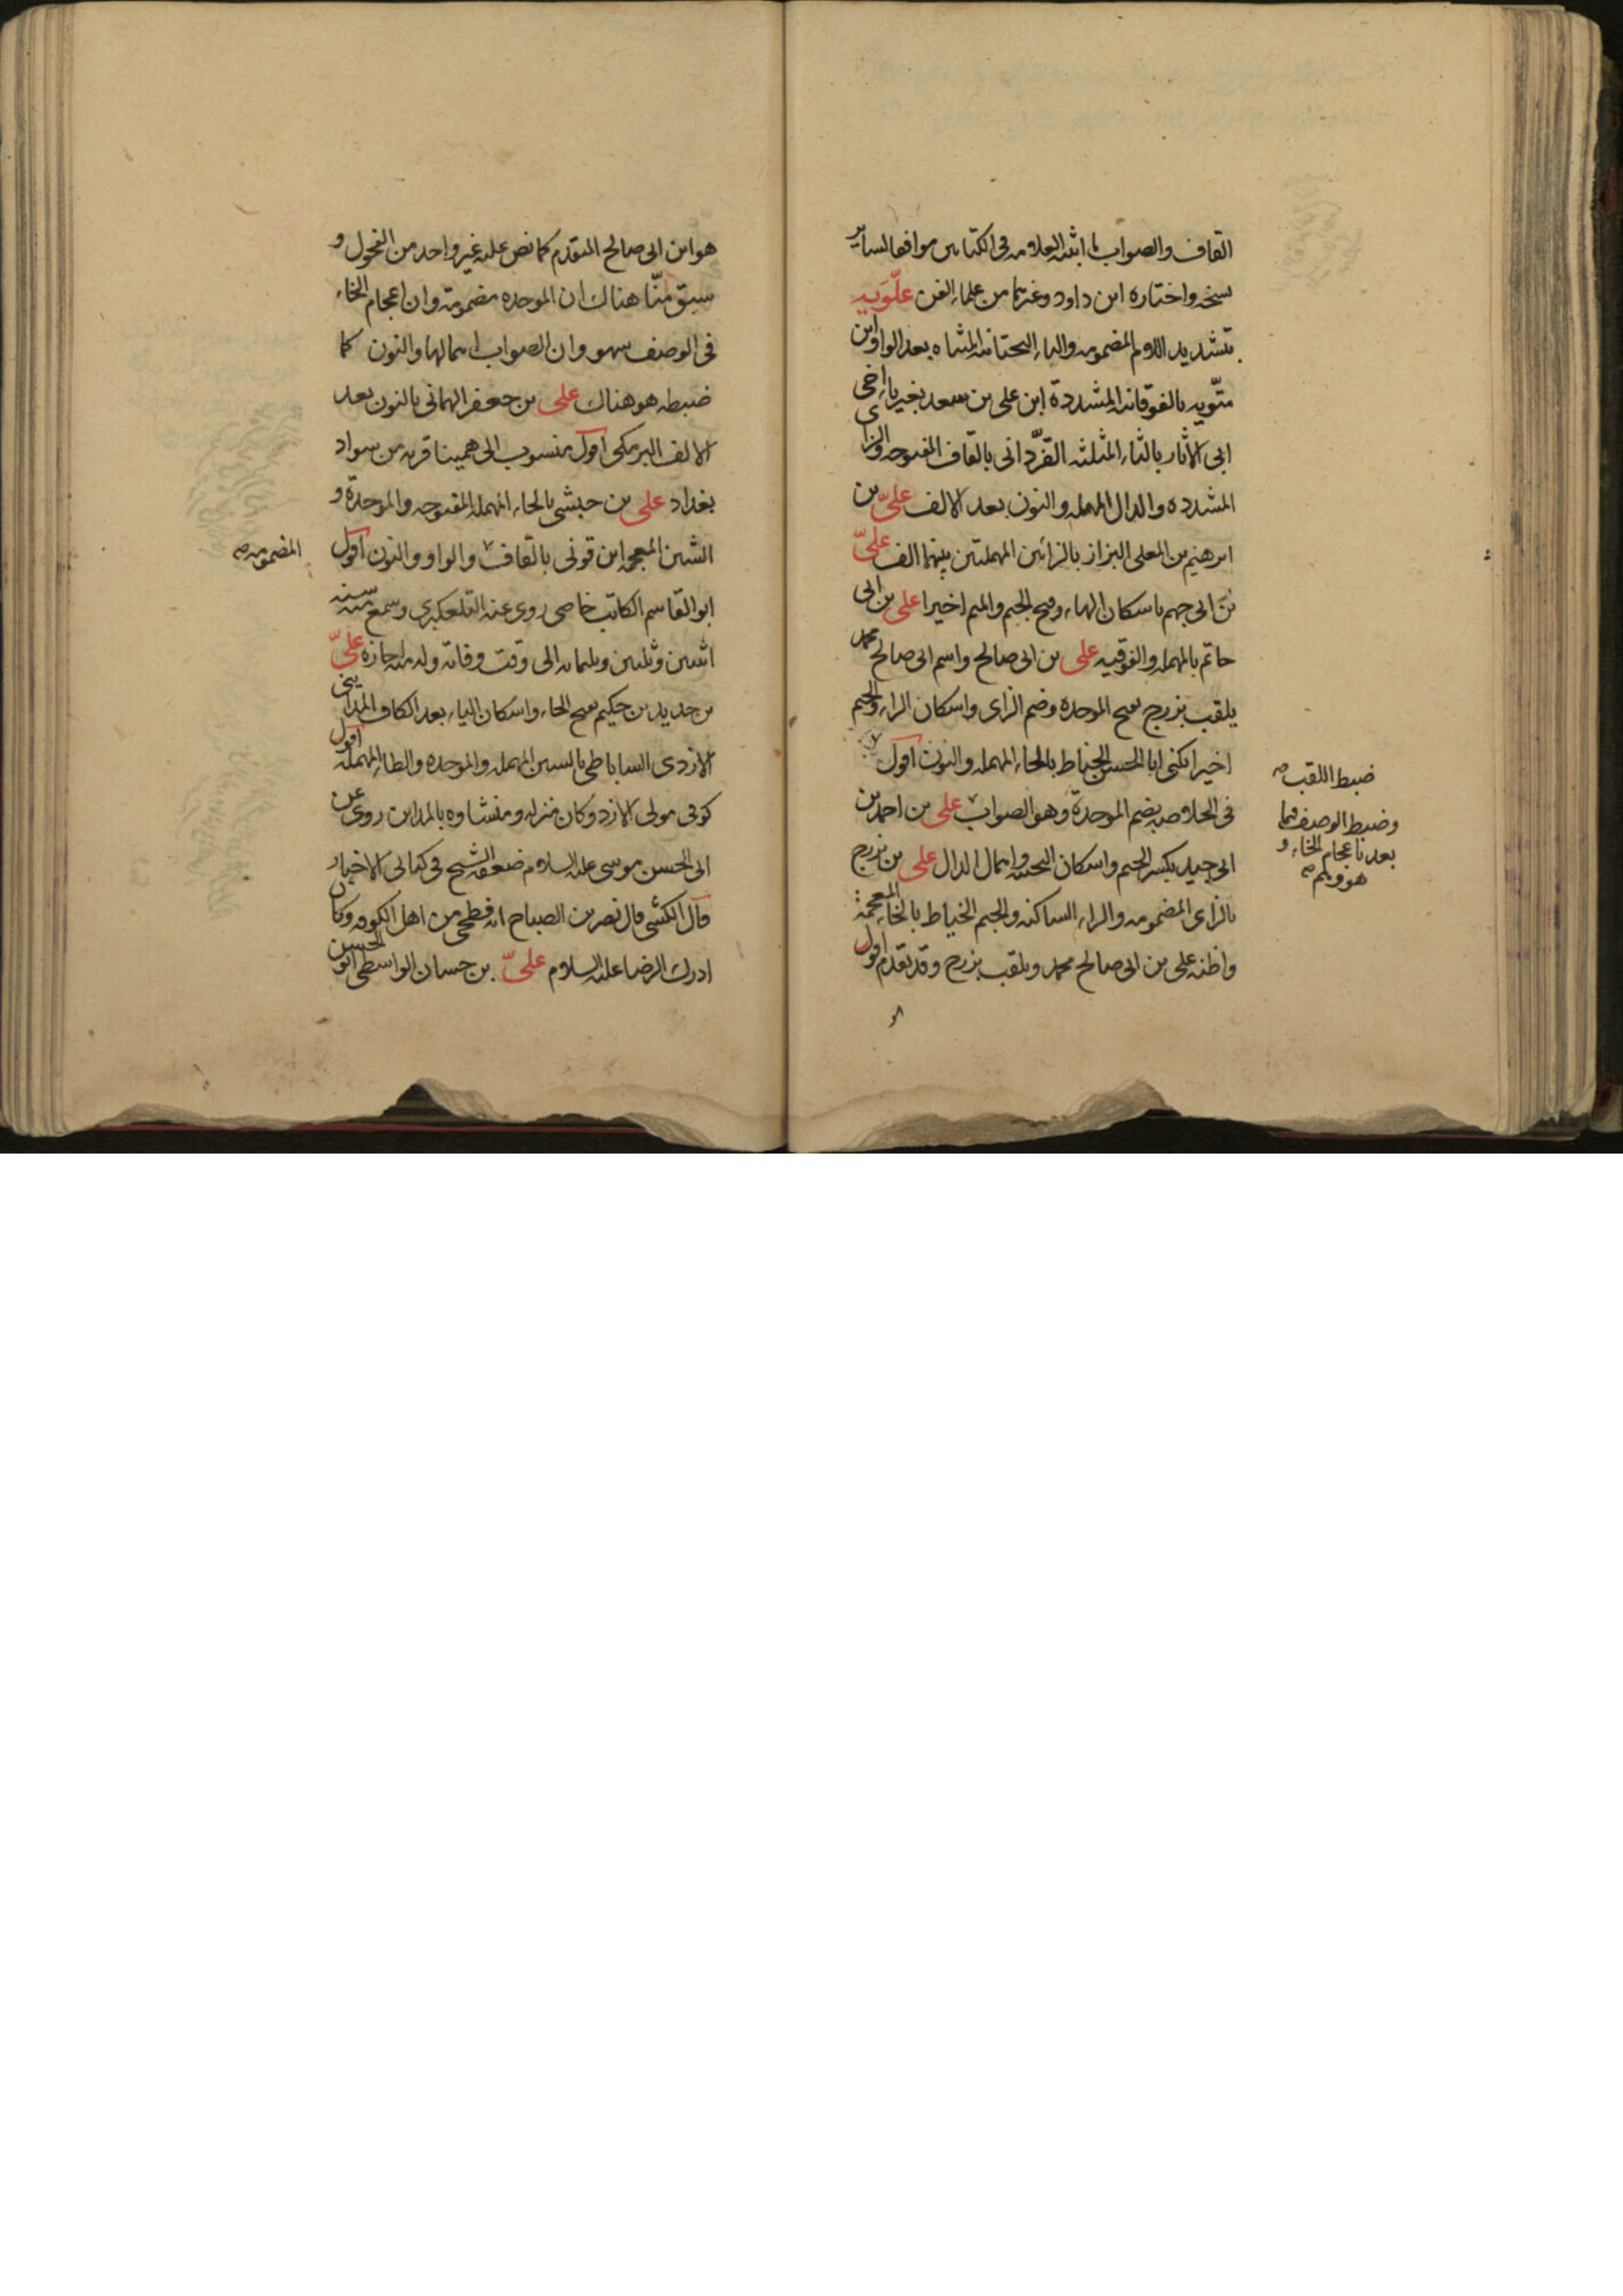 القاف والصواب ما اثبته العلامه فى الكتابين موافقا لساير
نسخه واختاره ابن داود وغيرها من علماء الفن علّويه
بتشديد اللام المضمومه والياء التحتانيه المثناه بعد الواو ابن
متّويه بالفوقانيه المشددة ابن على بن سعد بغير ياء اخى
ابى الاثار بالثاء المثلثه القزّدانى بالقاف المفتوحه والزاى
المشدده والدال المهمله والنون بعد الالف علىّ بن
ابرهيم بن المعلى البزاز بالزائين المهملتين بينهما الف علىّ
بن ابى جهم باسكان الهاء وفتح الجيم والميم اخيرا على بن ابى
حاتم بالمهمله والفوقيه على بن ابى صالح واسم ابى صالح محمد
يلقب بزرج بفتح الموحده وضم الزاى واسكان الراء والجيم
اخيرا يكنى ابا الحسن الحناط بالحاء المهمله والنون اقول
فى الخلاصه بضم الموحدة وهو الصواب على بن احمد بن
ابى جيد بكسر الجيم واسكان التحتيه واهمال الدال على بن بزرج
بالزاى المضمومه والراء الساكنه والجيم الخياط بالخاء المعجمة
واظنه على بن ابى صالح محمد ويلقب بزرج وقد تقدم اقول
ضبط اللقب صه
وضبط الوصف فيما
بعد باعجام الخاء و
هو وهم صه
هو ابن ابى صالح المتقدم كما نص عليه غير واحد من الفحول و
سبق منّا هناك ان الموحده مضمومة وان اعجام الخاء
فى الوصف سهو وان الصواب اهمالها والنون كما
ضبطه هو هناك على بن جعفر الهمانى بالنون بعد
الالف البرمكى اقول منسوب الى همينا قريه من سواد
بغداد على بن حبشى بالحاء المهمله المفتوحه والموحدة و
الشين المعجمه ابن قونى بالقاف والواو والنون اقول
المضمومه صه
ابو القاسم الكاتب خاصى روى عنه التلعكبرى وسمع منه سنه
اثنين وثلثين وثلثمائه الى وقت وفاته وله منه اجازه علىّ
بن حديد بن حكيم بفتح الحاء واسكان الياء بعد الكاف المداينى
الازدى الساباطى بالسين المهمله والموحده والطاء المهملة اقول
كوفى مولى الازد وكان منزله ومنشاوه بالمداين روى عن
ابى الحسن موسى عليه السلام ضعفه الشيخ فى كتابى الاخبار
قال الكشى قال نصر بن الصباح انه فطحى من اهل الكوفه وكان
ادرك الرضا عليه السلام علىّ بن حسان الواسطى ابو الحسن